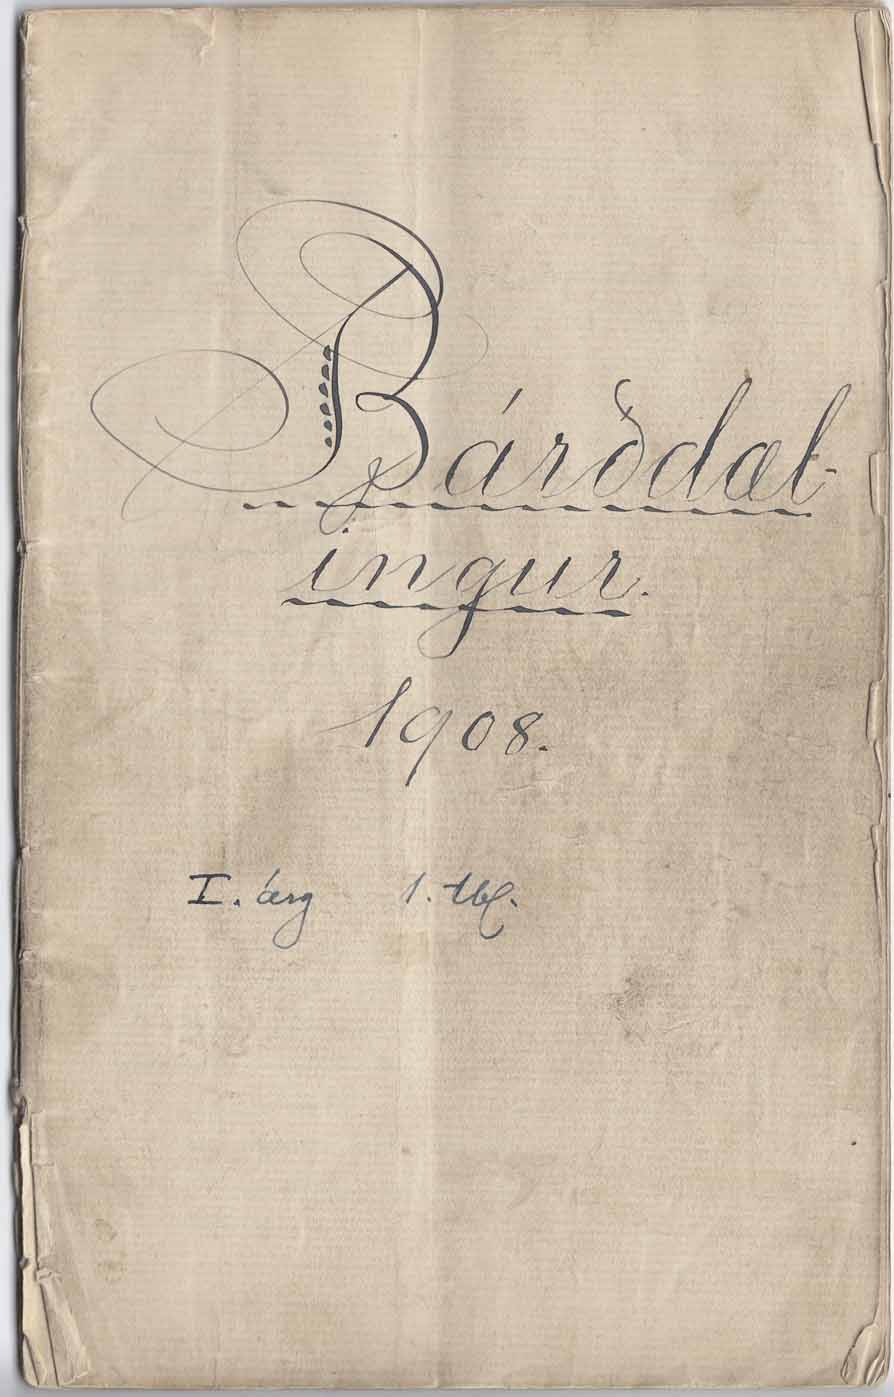 Bárðdæl-
ingur.
1908.
I. árg 1. tbl.